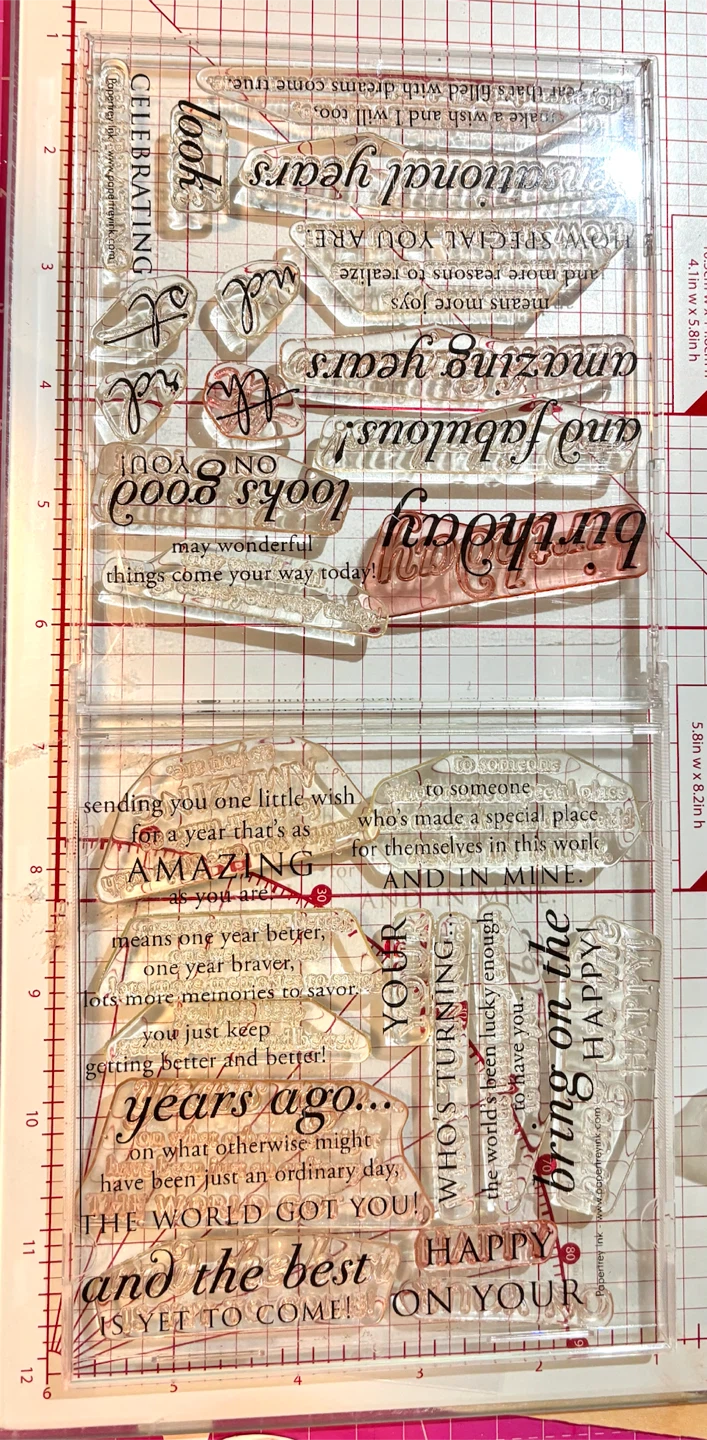 1
2
3
4
5
6
7
8
9
10
11
12
CELEBRATING
Papertrey Ink • www.papertreyink.com
look
year that's filled with dreams come true.
make a wish and I will, too,
years
HOW SPECIAL YOU ARE.
and more and more reasons to realize
means more joys
st
nd
rd
th
amazing years
and fabulous!
looks good
ON YOU!
birthday
may wonderful
things come your way today!
4.1in w x 5.8in h
5.8in w x 8.2in h
sending you one little wish
for a year that's as
AMAZING
as you are!
to someone
who's made a special place
for themselves in this
AND IN MINE.
30
means one year better,
one year braver,
lots more memories to savor.
you just keep
getting better and better!
YOUR
WHO'S TURNING...
the world's been lucky enough
to have you.
bring on the
HAPPY!
Papertrey Ink • www.papertreyink.com
years ago...
on what otherwise might
have been just an ordinary day,
THE WORLD GOT YOU!
70
80
HAPPY
and the best
IS YET TO COME!
ON YOUR
6
5
4
3
2
1